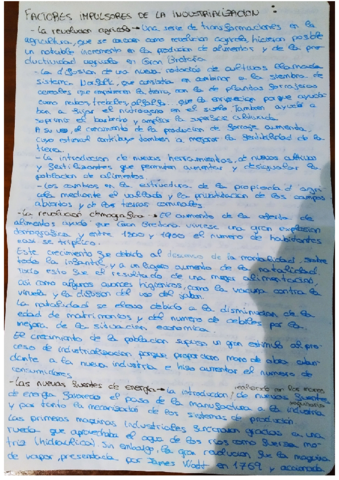 FACTORES IMPULSORES DE LA INDUSTRIALIZACIÓN :
- La revolucion agricola → Una serie de transformaciones en la
agricultura, que se conoce como revolucion agricola, hicieron posible
un notable incremento en la producion de alimentos y de la pro-
ductividad agricola en Gran Bretaña
- La difusion de una nueva rotacion de cultivos llamada
sistema Norfolk, que consistia en combinar a la siembra de
cereales que empobrecen la tierra, con la de plantas forrajeras
como nabos, trebol, alfalfa que la enriquecian porque ayuda-
ban a fijar el nitrogeno en el suelo. Tambien ayudó a
suprimir el barbecho y ampliar la superficie cultivada.
A su vez, el crecimiento de la produccion de forraje aumenta
cuyo estiercol contribuye tambien a mejorar la fertilidad de la
tierra.
- La introduccion de nuevas herramientas, de nuevos cultivos
y fertilizantes que permitian aumentar y
produccion de alimentos
- Los cambios en la estructura de la propiedad agri-
cola mediante el vallado y la privatizacion de los campos
abiertos y de las tierras comunales.
- La revolucion demografica → El aumento de la oferta de
alimentos ayudo que Gran Bretaña viviese una gran explosion
demografica y entre 1700 y 1900 el numero de habitantes
casi se triplico.
Este crecimiento fue debido al descenso de la mortalidad, sobre
todo la infantil y a un ligero aumento de la natalidad.
Todo esto fue el resultado de una mejor alimentacion,
asi como algunos avances higienicos, como la vacuna contra la
viruela y la difusion del uso del jabon.
La natalidad se elevó debido a la disminucion de la
edad de matrimonios y del numero de celibes por la
mejora de la situacion economica.
El crecimiento de la poblacion supuso un gran estimulo al pro-
ceso de industrializacion porque proporcionó mano de obra abun-
dante a la nueva industria e hizo aumentar el numero de
consumidores.
- Las nuevas fuentes de energia → La introduccion de nuevas fuentes
de energia favoreció el paso de la manufactura a la industria
y por tanto la modernizacion de los sistemas de produccion
Las primeras maquinas industriales funcionaron gracias a una
rueda que aprovechaba el agua de los rios como fuerza mo-
triz (hidraulica). Sin embargo, la gran revolucion fue la maquina
de vapor, presentada por James Watt en 1769 y accionada